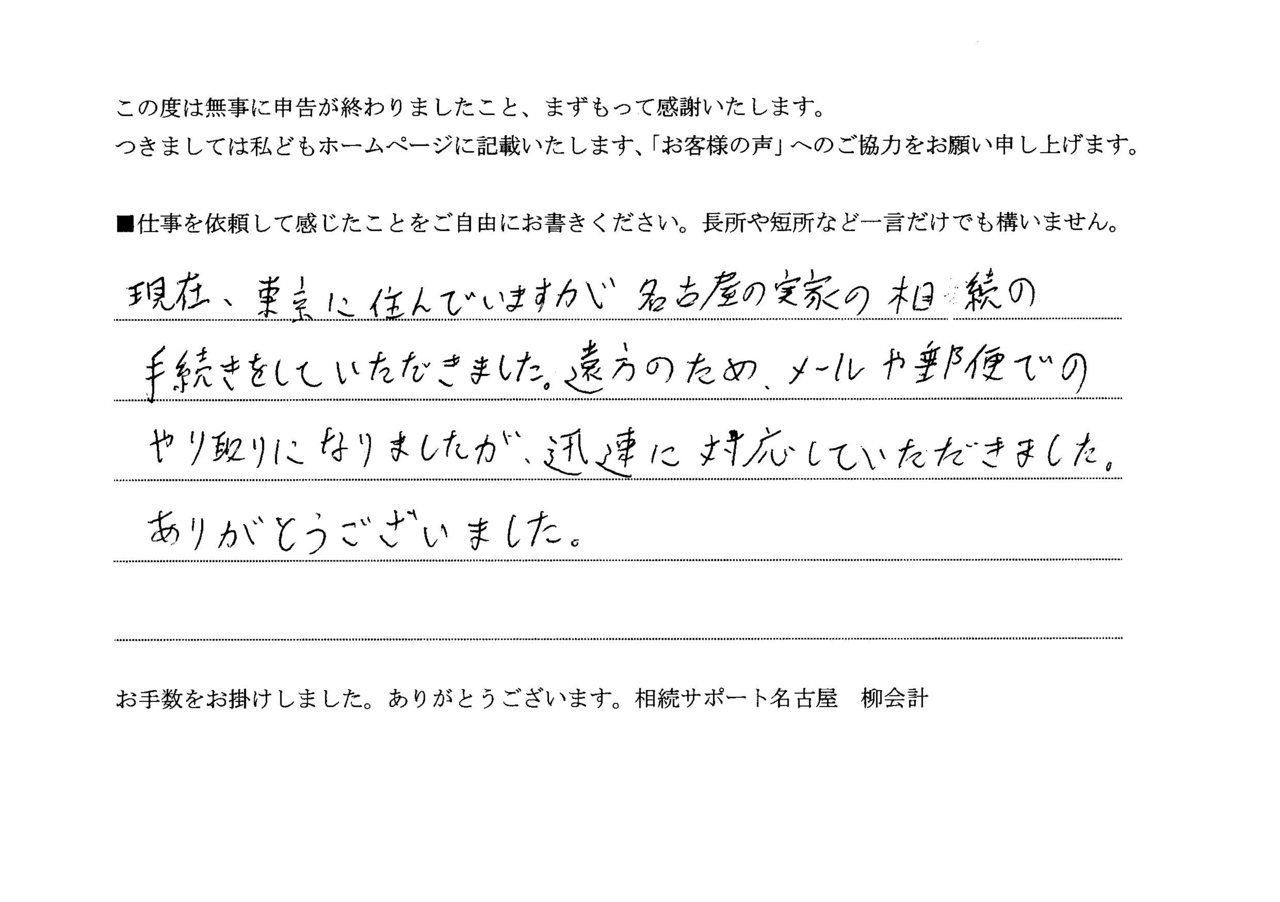 この度は無事に申告が終わりましたこと、まずもって感謝いたします。
つきましては私どもホームページに記載いたします、「お客様の声」へのご協力をお願い申し上げます。
■仕事を依頼して感じたことをご自由にお書きください。長所や短所など一言だけでも構いません。
現在、東京に住んでいますが名古屋の実家の相続の
手続きをしていただきました。遠方のため、メールや郵便での
やり取りになりましたが、迅速に対応していただきました。
ありがとうございました。
お手数をお掛けしました。ありがとうございます。相続サポート名古屋　柳会計